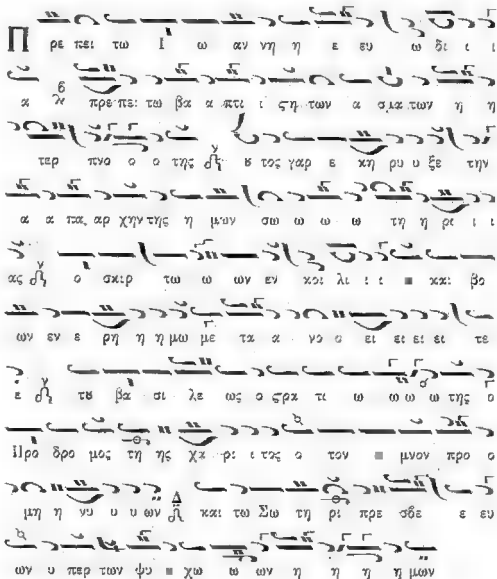 Π ρε πει τω Ι ω αν νη η ε ευ ω δι ι ι
α πρε πει τω βα α πτι ι ςη των α σμα των η η
τερ πνο ο ο της ȣ τος γαρ ε κη ρυ υ ξε την
α α πα αρ χην της η μων σω ω ω ω τη η ρι ι ι
ας ο σκιρ τω ω ων εν κοι λι ι ι και βο
ων εν ε ρη η η μω με τα α νο ο ει ει ει ει τε
ε τȣ βα σι λε ως ο ςρα τι ω ω ω ω της ο
Προ δρο μος τη ης χα ρι ι τος ο τον μνον προ ο
μη η νυ υ υ ων και τω Σω τη ρι πρε σβε ε ευ
ων υ περ των ψυ χω ω ων η η η η μων